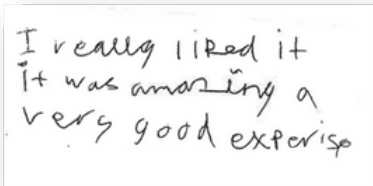 I really liked it
it was amazing a
very good experise